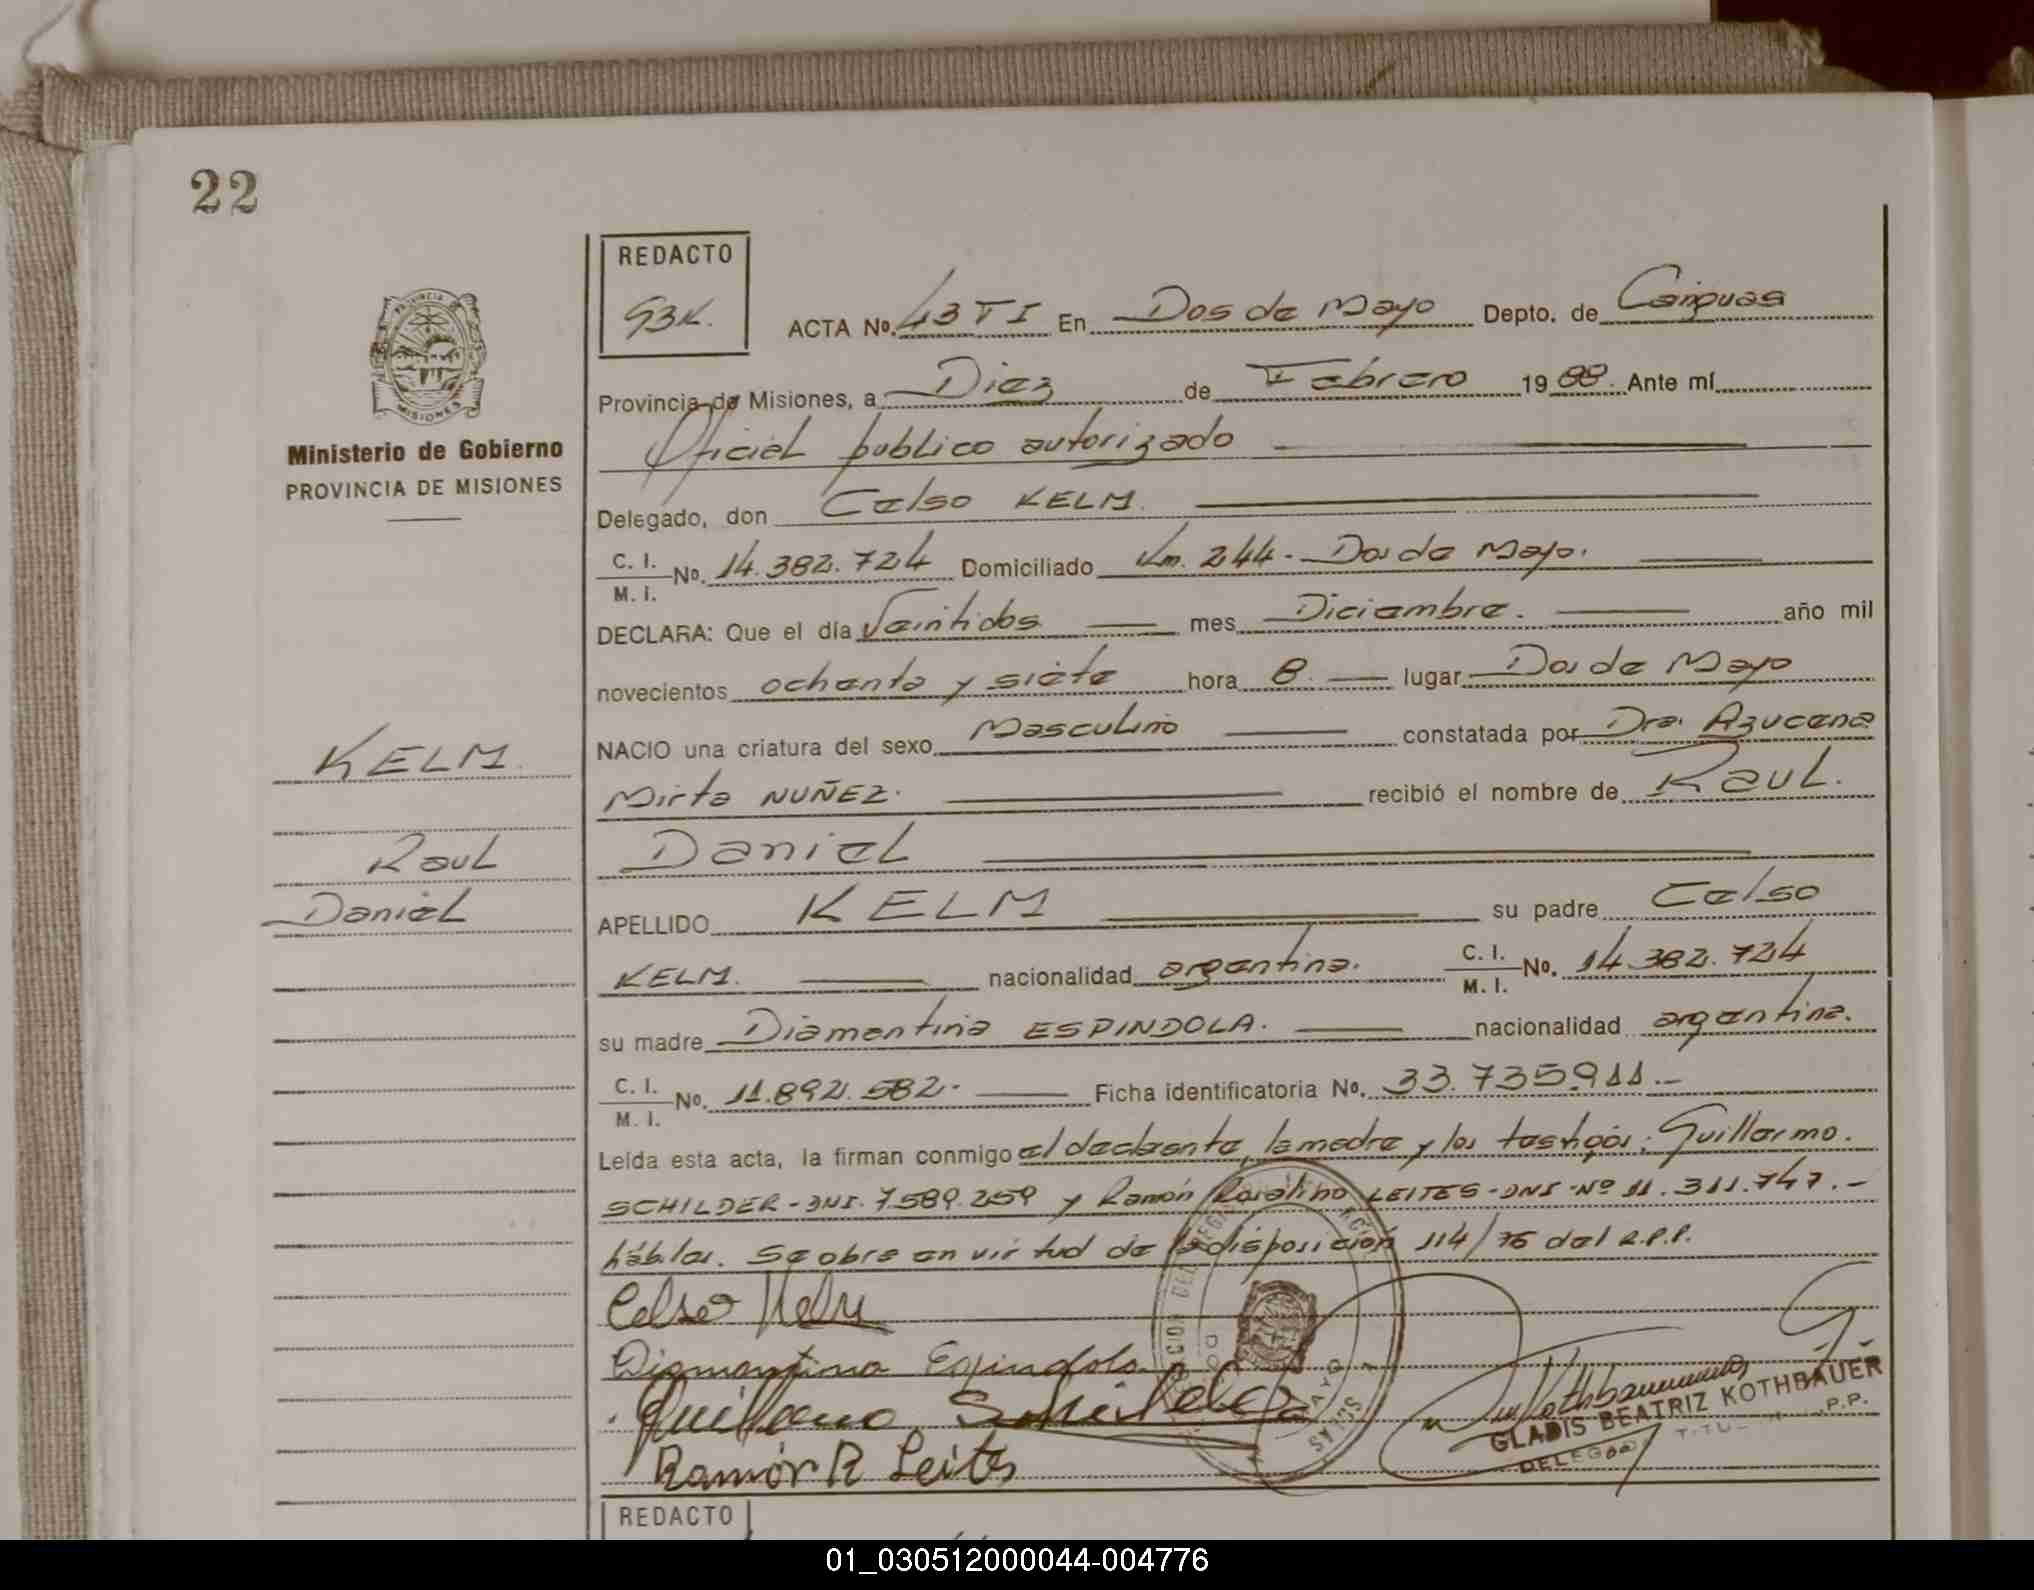 22
REDACTO
GBK.
ACTA No. 43 TI En Dos de Mayo Depto. de Cainguas
Provincia de Misiones, a Diez de Febrero 19 88. Ante mí
Oficial público autorizado
Ministerio de Gobierno
PROVINCIA DE MISIONES
Delegado, don Celso KELM.
C. I.
M. I. No. 14.382.724 Domiciliado Km. 244 - Dos de Mayo.
DECLARA: Que el día Veintidos mes Diciembre. año mil
novecientos ochenta y siete hora 8. lugar Dos de Mayo
NACIO una criatura del sexo Masculino constatada por Dra. Azucena
KELM.
Mirta NUÑEZ. recibió el nombre de Raul
Raul
Daniel
Daniel
APELLIDO KELM su padre Celso
KELM. nacionalidad argentina. C. I.
M. I. No. 14.382.724
su madre Diamantina ESPINDOLA. nacionalidad argentina.
C. I.
M. I. No. 11.892.582.- Ficha identificatoria No. 33.735911.-
Leída esta acta, la firman conmigo el declarante, la madre y los testigos: Guillermo.
SCHILDER - DNI. 7.589.259 y Ramón Rosalino LEITES - DNI - Nº 11.311.747.-
hábiles. Se obra en virtud de la disposición 114/76 del R.P.P.
Celso Kelm
Diamantina Espindola
Guillermo Schilder
Ramón R Leites
GLADIS BEATRIZ KOTHBAUER
DELEGADA P.P.
REDACTO
01_030512000044-004776